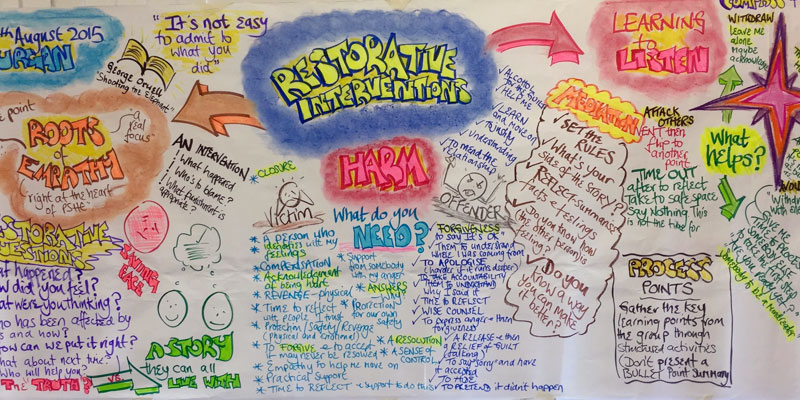 TH AUGUST 2015
URGAN
George Orwell
"Shooting the Elephant"
"It's not easy
to admit to
what you
did"
RESTORATIVE
INTERVENTIONS
LEARNING
to
LISTEN
WITHDRAW
leave me
alone
Maybe
acknowledge
point
ROOTS
of
EMPATHY
"a
real
focus"
right at the heart
of PSHE
AN INTERVENTION
What happened
Who's to blame?
What punishment is
appropriate?
HARM
What do you
NEED?
* CLOSURE
Victim
* A PERSON WHO
identifies with my
feelings
* COMPENSATION
* Acknowledgement
of being hurt
* REVENGE - physical
* Time to reflect
with people I trust
* Protection/Safety/Revenge
(physical and emotional)
* TO FORGIVE or to accept
it may never be resolved
* Empathy to help me move on
* Practical support
* TIME TO REFLECT + support to do this
* Support
from somebody
with my anger
* ANSWERS
* Protection
for our own
safety
* A RESOLUTION
* A SENSE OF
CONTROL
✓ ALCOHOL
✓ LEARN
and move on
✓ Understanding
✓ To mend the
relationship
OFFENDER
FORGIVENESS
✓ to say It's OK
✓ Them to understand
where I was coming from
✓ TO APOLOGISE
(harder if it runs deeper)
✓ TAKE ACCOUNTABILITY
✓ THEM TO UNDERSTAND
why I said it
✓ TIME TO REFLECT
✓ WISE COUNSEL
✓ To express anger + then
forgiveness
✓ A RELEASE + then
a RELIEF of GUILT
(talking)
✓ To say "sorry" and have
it accepted
✓ TO HIDE
✓ TO PRETEND it didn't happen
MEDIATION
✓ SET the
RULES
✓ What's your
side of the STORY?
✓ REFLECT summarise
facts + feelings
✓ Do you know how
the other person is
feeling?
✓ Do you
know a way
you can make
it better?
ATTACK
OTHERS
VENT then
flip to
another
point
TIME OUT
after to reflect
Take to safe space
Say Nothing This
is not the time for
What
helps?
PROCESS
POINTS
Gather the key
learning points from
the group through
structured activities
(Don't present a
BULLET Point Summary
RESTORATIVE
QUESTIONS
What happened?
How did you feel?
What were you thinking?
Who has been affected by
this and how?
How can we put it right?
What about next time?
Who will help you?
THE TRUTH?
vs.
SAVING
FACE
A STORY
they can all
LIVE WITH